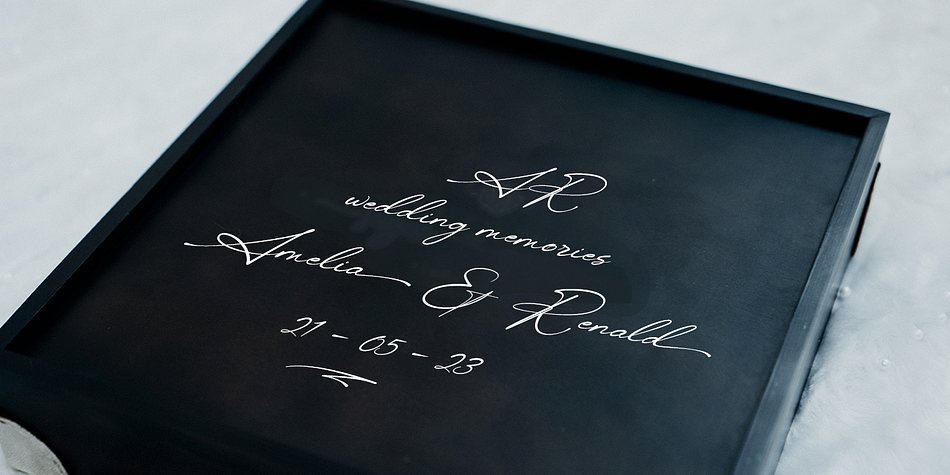 AR
wedding memories
Amelia & Renald
21 - 05 - 23